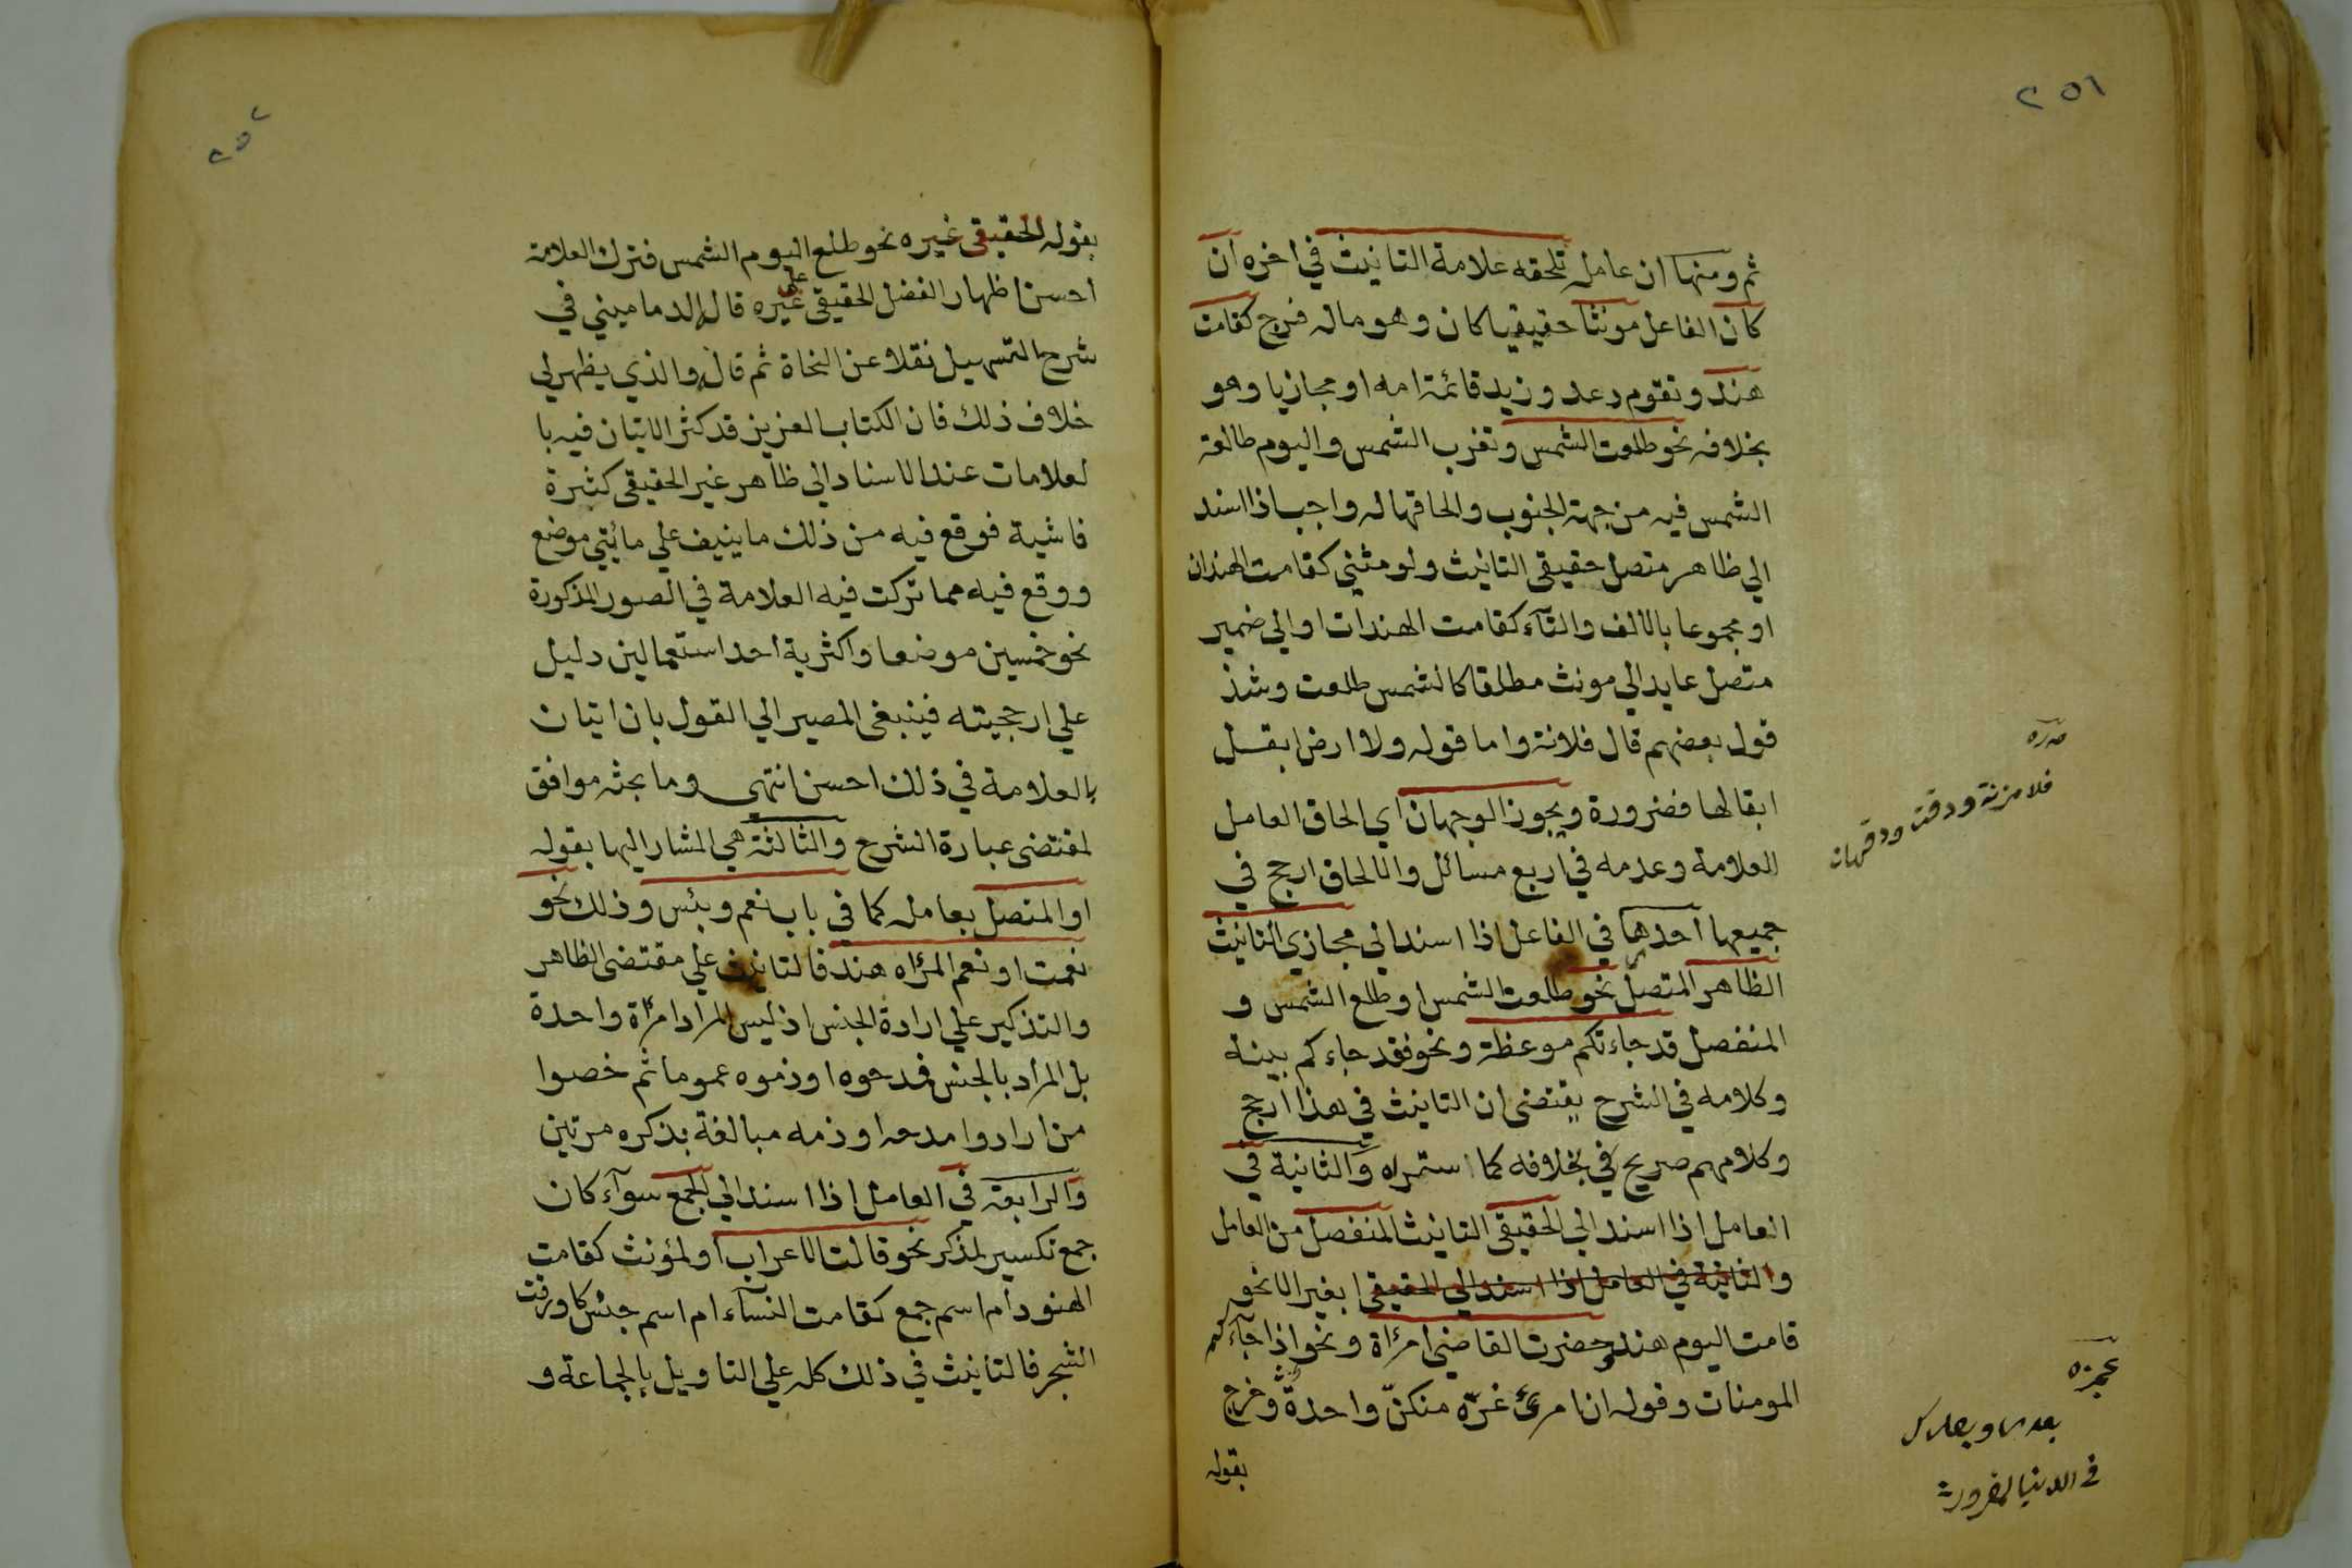 ٢٥١
ثم ومنها ان عامله تلحقه علامة التانيث في اخره ان
كان الفاعل مونثا حقيقيا كان وهو ماله فرج كقامت
هند وتقوم دعد وزيد قائمة امه او مجازيا وهو
بخلافه نحو طلعت الشمس وتغرب الشمس واليوم طالعة
الشمس فيه من جهة الجنوب والحاقها له واجب اذا اسند
الي ظاهر متصل حقيقي التانيث ولو مثني كقامت الهندان
او مجموعا بالالف والتآء كقامت الهندات او الي ضمير
متصل عايد الي مونث مطلقا كالشمس طلعت وشذ
قول بعضهم قال فلانة واما قوله ولا ارض ابقـل
ابقالها فضرورة ويجوز الوجهان اي الحاق العامل
العلامة وعدمه في اربع مسائل والالحاق ارجح في
جميعها احدها في الفاعل اذا اسند الي مجازي التانيث
الظاهر المتصل نحو طلعت الشمس او وطلع الشمس و
المنفصل قد جاءتكم موعظة ونحو فقد جاءكم بينة
وكلامه في الشرح يقتضي ان التانيث في هذا ارجح
وكلامهم صريح في بخلافه كما ستمراه والثانية في
العامل اذا اسند الي الحقيقي التانيث المنفصل من العامل
والثانية في العامل اذا اسند الي الحقيقي بغير الا نحو
قامت اليوم هند وحضرت القاضي امرءاة ونحو اذا جآءكم
المومنات وقوله ان امرئ غرّه منكنّ واحدة وخرج
بقوله
صدره
فلا مزنة ودقت ودقها
عجزه
بعدي وبعدك
في الدنيا لمغرور
٢٥٢
بقوله الحقيقي غيره نحو طلع اليوم الشمس فترك العلامة
احسن اظهار الفضل الحقيقي على غيره قال الدماميني في
شرح التسهيل نقلا عن النحاة ثم قال والذي يظهر لي
خلاف ذلك فان الكتاب العزيز قد كثر الاتيان فيه با
لعلامات عند الاسناد الي ظاهر غير الحقيقي كثرة
فاشية فوقع فيه من ذلك ما ينيف علي مائتي موضع
ووقع فيه مما تركت فيه العلامة في الصور المذكورة
نحو خمسين موضعا واكثرية احد استعمالين دليل
علي ارجحيته فينبغي المصير الي القول بان اتيان
بالعلامة في ذلك احسن انتهي وما بحثه موافق
لمقتضي عبارة الشرح والثالثة هي المشار اليها بقوله
او المتصل بعامله كما في باب نعم وبئس وذلك نحو
نعمت او نعم المرءاه هند فالتانيث علي مقتضي الظاهر
والتذكير علي ارادة الجنس اذ ليس المراد امرأة واحدة
بل المراد بالجنس فمدحوه او ذموه عموما ثم خصوا
من ارادوا مدحه او ذمه مبالغة بذكره مرتين
والرابعة في العامل اذا اسند الي الجمع سوآء كان
جمع تكسير لمذكر نحو قالت الاعراب او لمؤنث كقامت
الهنود ام اسم جمع كقامت النسآء ام اسم جنس كاورقت
الشجر فالتانيث في ذلك كله علي التاويل بالجماعة و